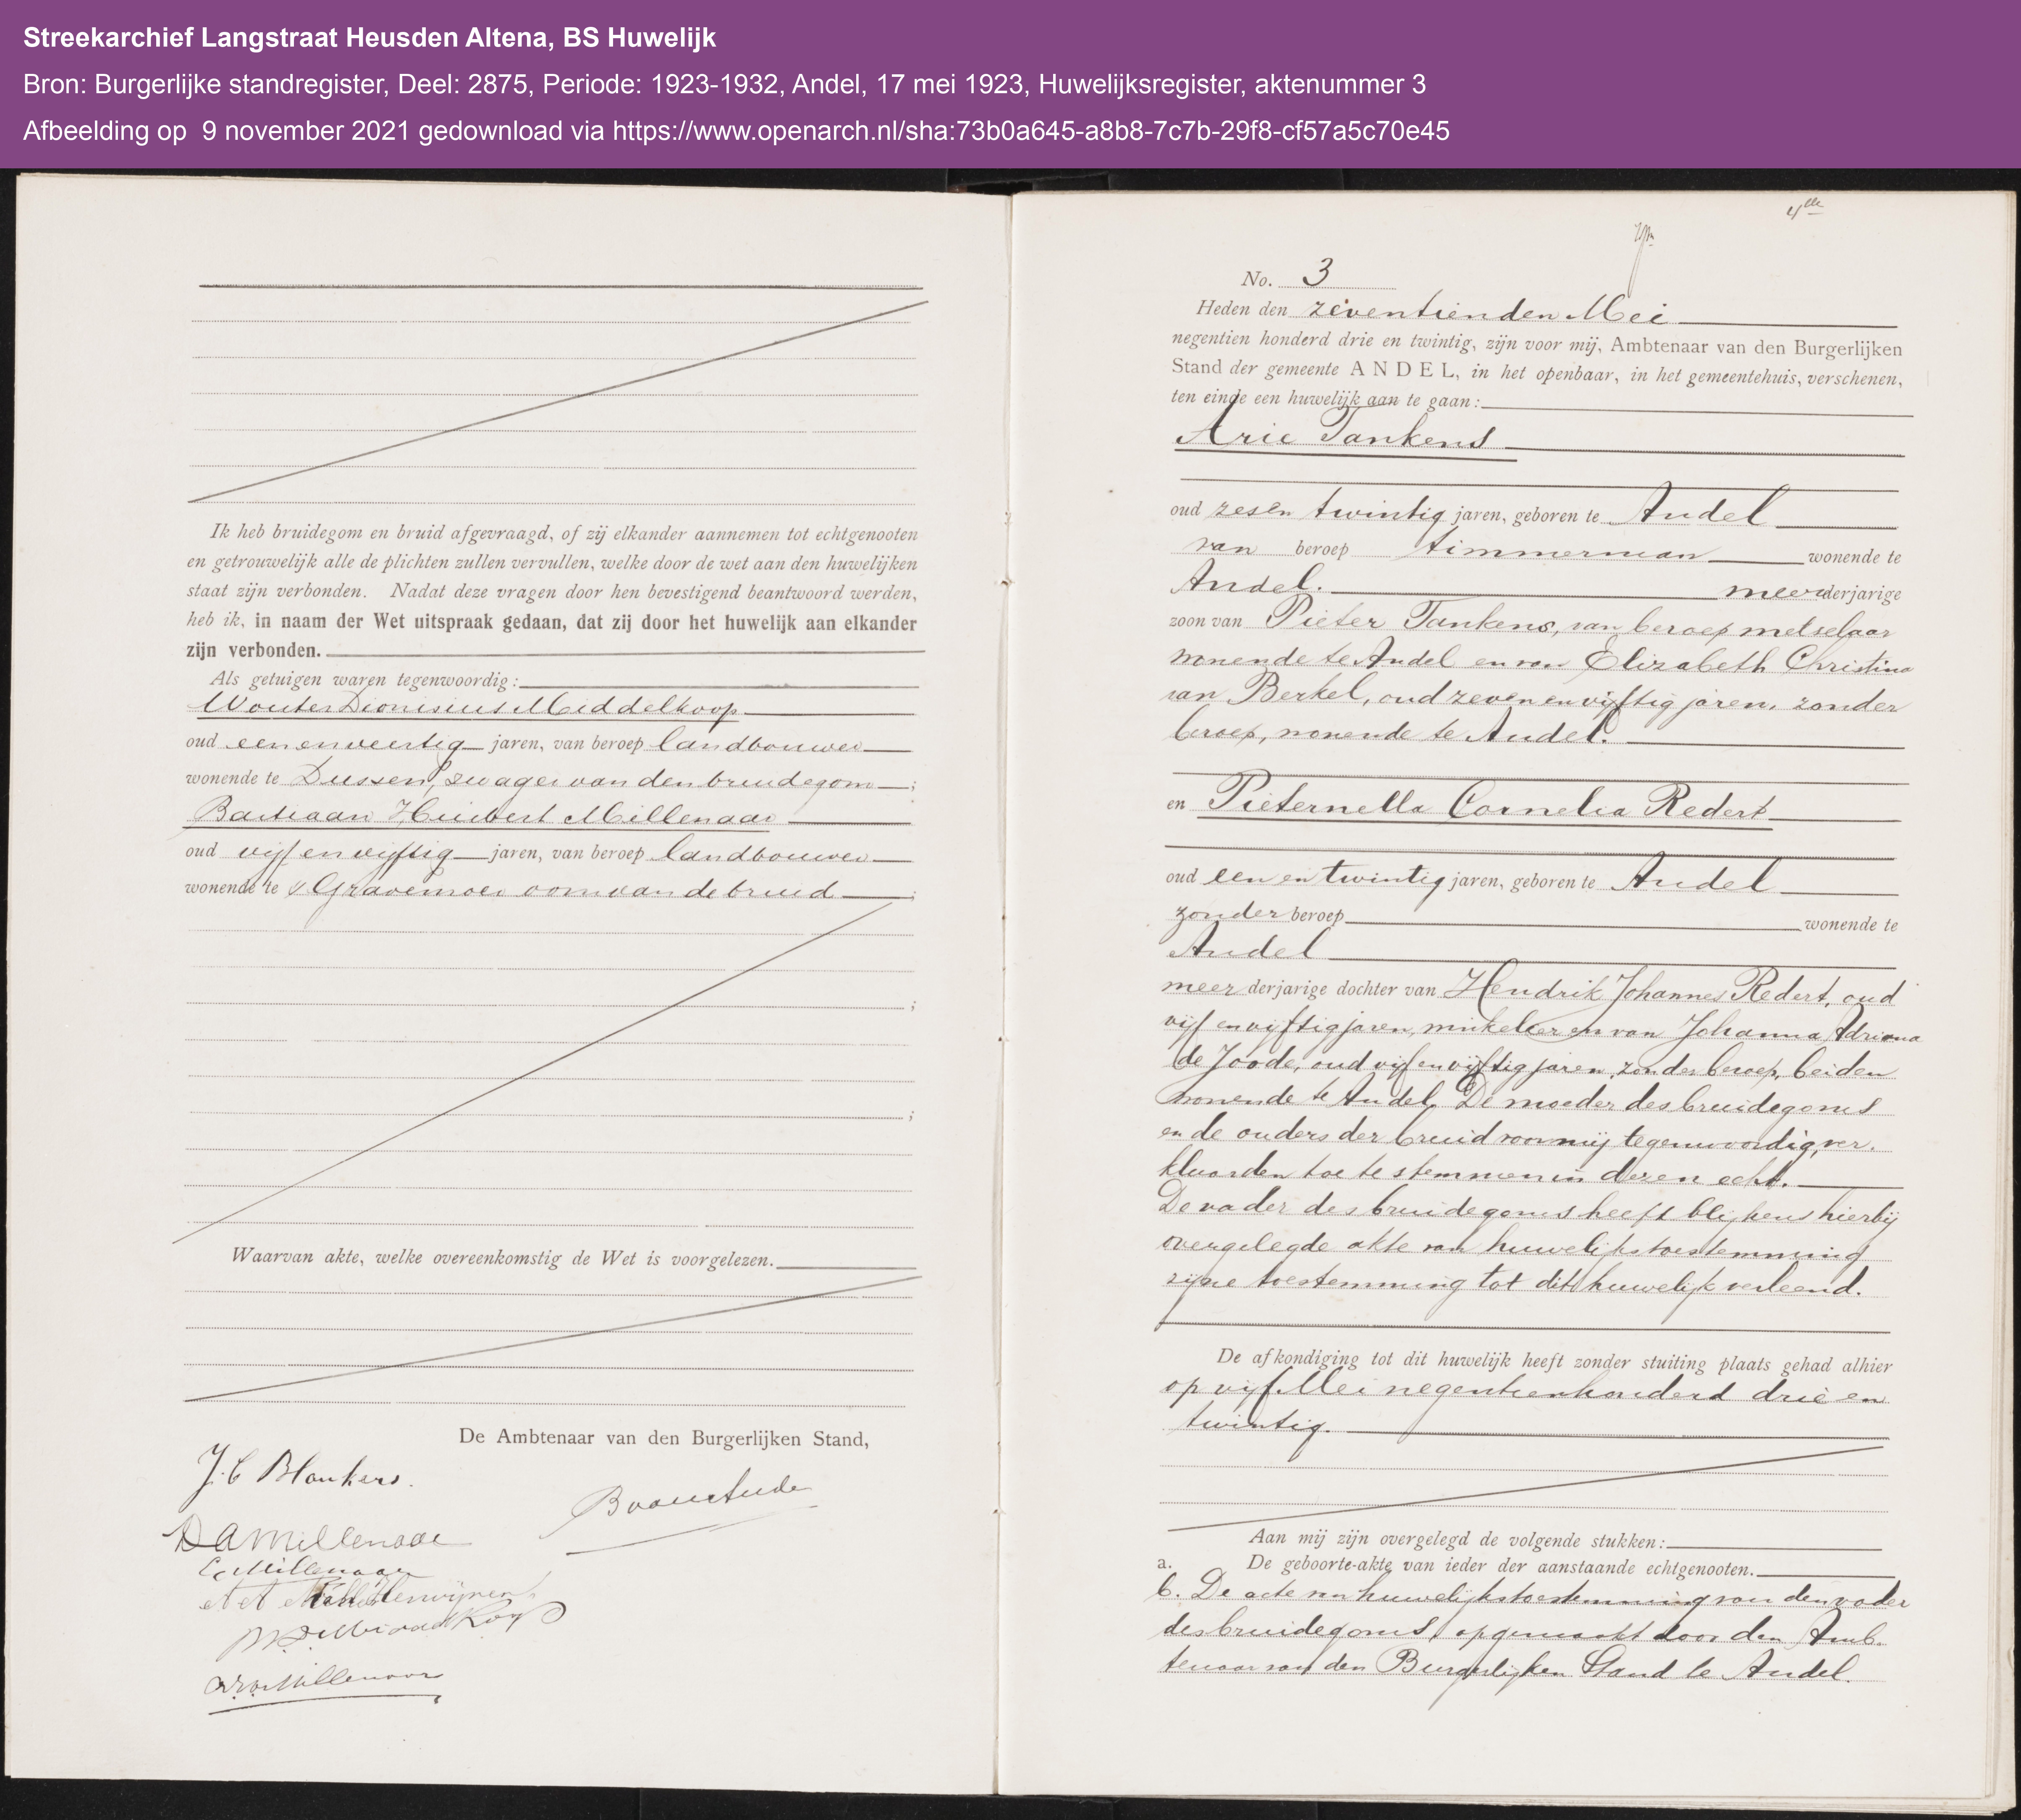 Streekarchief Langstraat Heusden Altena, BS Huwelijk
Bron: Burgerlijke standregister, Deel: 2875, Periode: 1923-1932, Andel, 17 mei 1923, Huwelijksregister, aktenummer 3
Afbeelding op 9 november 2021 gedownload via https://www.openarch.nl/sha:73b0a645-a8b8-7c7b-29f8-cf57a5c70e45
Ik heb bruidegom en bruid afgevraagd, of zij elkander aannemen tot echtgenooten
en getrouwelijk alle de plichten zullen vervullen, welke door de wet aan den huwelijken
staat zijn verbonden. Nadat deze vragen door hen bevestigend beantwoord werden,
heb ik, in naam der Wet uitspraak gedaan, dat zij door het huwelijk aan elkander
zijn verbonden.
Als getuigen waren tegenwoordig:
Wouter Dionisius Middelkoop
oud een en veertig jaren, van beroep landbouwer
wonende te Dussen, zwager van den bruidegom ;
Bastiaan Huibert Millenaar
oud vijf en vijftig jaren, van beroep landbouwer
wonende te 's Gravemoer oom van de bruid ;
;
;
Waarvan akte, welke overeenkomstig de Wet is voorgelezen.
De Ambtenaar van den Burgerlijken Stand,
J. C Blankers.
D A Millenaar
C. Millenaar
4de
No. 3
Heden den zeventienden Mei
negentien honderd drie en twintig, zijn voor mij, Ambtenaar van den Burgerlijken
Stand der gemeente ANDEL, in het openbaar, in het gemeentehuis, verschenen,
ten einde een huwelijk aan te gaan:
Arie Tankens
oud zes en twintig jaren, geboren te Andel
van beroep timmerman wonende te
Andel. meerderjarige
zoon van Pieter Tankens, van beroep metselaar
wonende te Andel en van Elizabeth Christina
van Berkel, oud zeven en vijftig jaren, zonder
beroep, wonende te Andel.
en Pieternella Cornelia Redert
oud een en twintig jaren, geboren te Andel
zonder beroep wonende te
Andel
meer derjarige dochter van Hendrik Johannes Redert, oud
vijf en vijftig jaren, winkelier en van Johanna Adriana
de Joode, oud vijf en vijftig jaren, zonder beroep, beiden
wonende te Andel. De moeder des bruidegoms
en de ouders der bruid voor mij tegenwoordig, ver-
klaarden toe te stemmen in dezen echt.
De vader des bruidegoms heeft blijkens hierbij
overgelegde akte van huwelijkstoestemming
zijne toestemming tot dit huwelijk verleend.
De afkondiging tot dit huwelijk heeft zonder stuiting plaats gehad alhier
op vijf Mei negentienhonderd drie en
twintig.
Aan mij zijn overgelegd de volgende stukken:
a. De geboorte-akte van ieder der aanstaande echtgenooten.
b. De acte van huwelijkstoestemming van den vader
des bruidegoms, opgemaakt door den Amb-
tenaar van den Burgerlijken Stand te Andel.